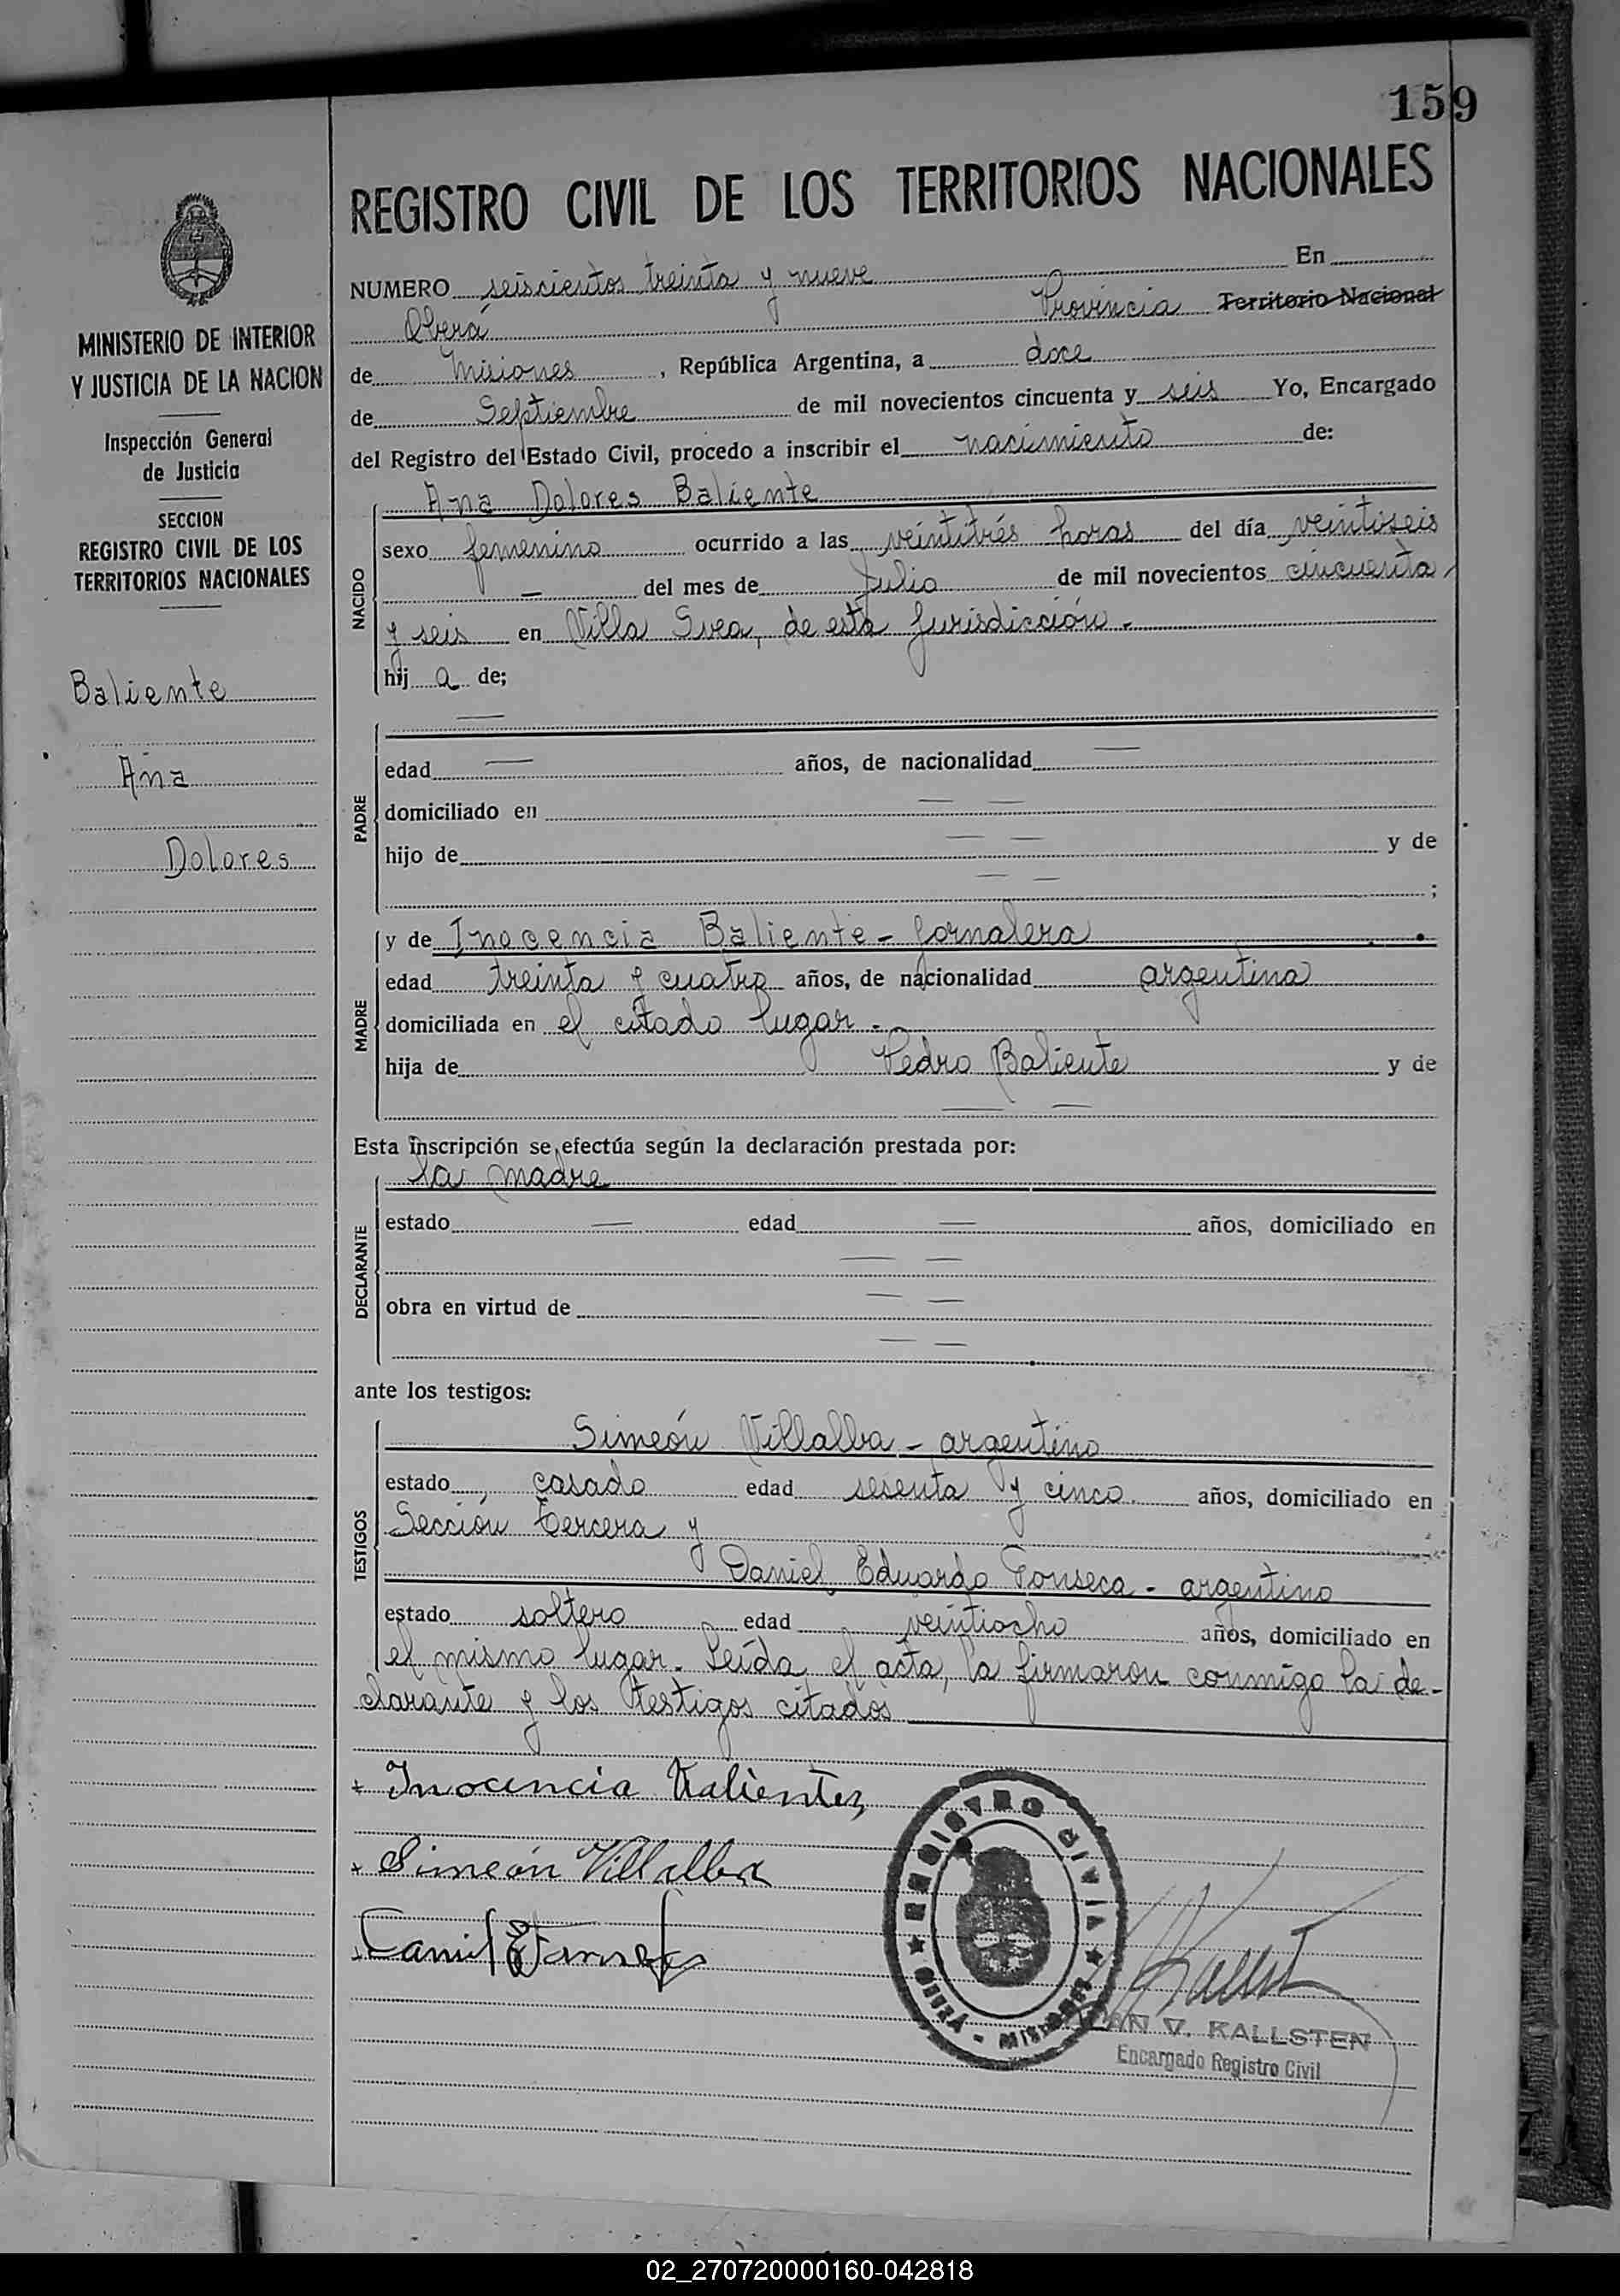 159
REGISTRO CIVIL DE LOS TERRITORIOS NACIONALES
MINISTERIO DE INTERIOR
Y JUSTICIA DE LA NACION
Inspección General
de Justicia
SECCION
REGISTRO CIVIL DE LOS
TERRITORIOS NACIONALES
Baliente
Ana
Dolores
NUMERO seiscientos treinta y nueve En
Oberá Provincia Territorio Nacional
de Misiones, República Argentina, a doce
de Septiembre de mil novecientos cincuenta y seis Yo, Encargado
del Registro del Estado Civil, procedo a inscribir el nacimiento de:
NACIDO
Ana Dolores Baliente
sexo femenino ocurrido a las veintitrés horas del día veintiseis
— del mes de Julio de mil novecientos cincuenta
y seis en Villa Svea, de esta Jurisdicción.-
hij a de;
PADRE
—
edad — años, de nacionalidad —
domiciliado en — —
hijo de — — y de
— — ;
MADRE
y de Inocencia Baliente - Jornalera
edad treinta y cuatro años, de nacionalidad argentina
domiciliada en el citado lugar.-
hija de Pedro Baliente y de
— —
Esta inscripción se efectúa según la declaración prestada por:
DECLARANTE
la madre
estado — edad — años, domiciliado en
— —
obra en virtud de — —
— —
ante los testigos:
TESTIGOS
Simeón Villalba - argentino
estado casado edad sesenta y cinco años, domiciliado en
Sección tercera y
Daniel Eduardo Fonseca - argentino
estado soltero edad veintiocho años, domiciliado en
el mismo lugar. Leída el acta, la firmaron conmigo la de-
clarante y los testigos citados
Inocencia Valientez
Simeón Villalba
REGISTRO CIVIL
OBERÁ - MISIONES
V. KALLSTEN
Encargado Registro Civil
02_270720000160-042818